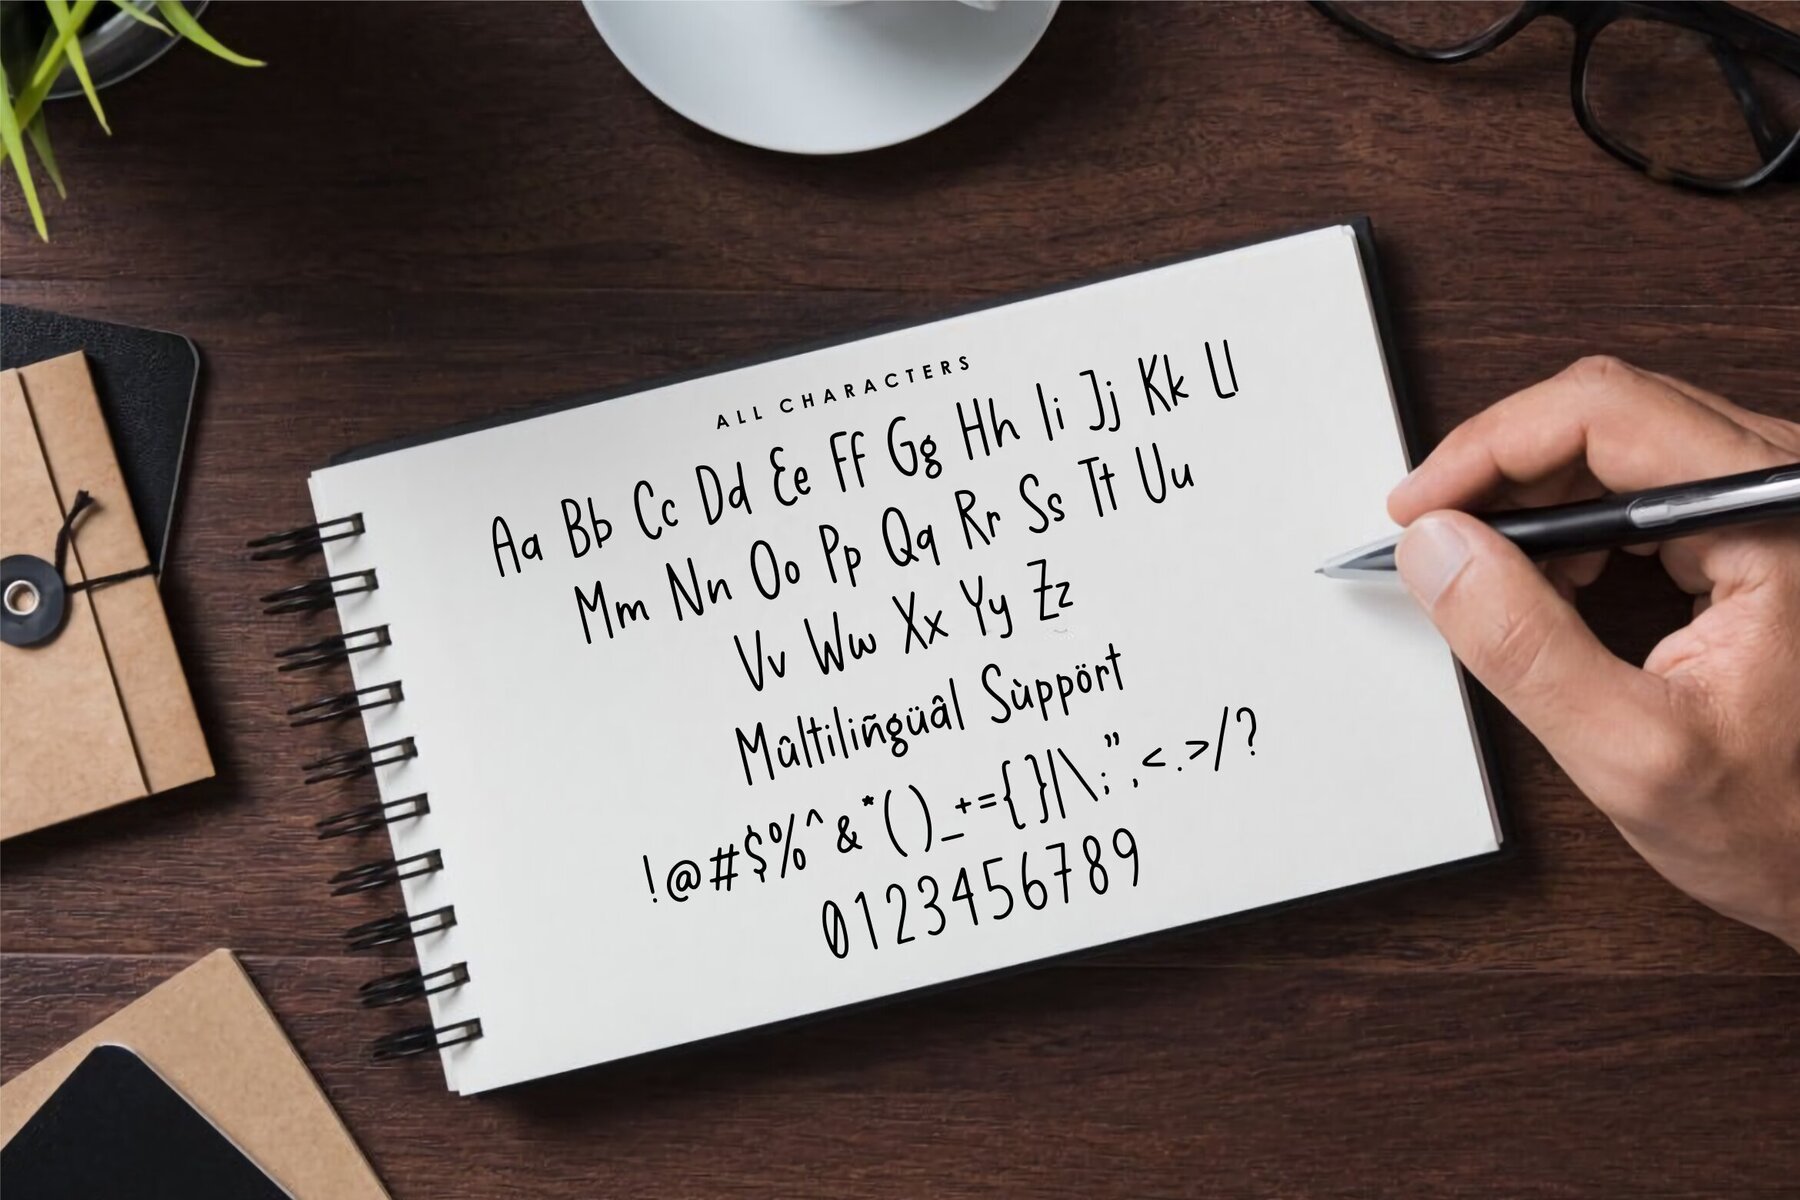 ALL CHARACTERS
Aa Bb Cc Dd Ee Ff Gg Hh Ii Jj Kk Ll
Mm Nn Oo Pp Qq Rr Ss Tt Uu
Vv Ww Xx Yy Zz
Mûltiliñgüâl Sùppört
!@#$%^&*()_+={}|\;",<.>/?
0123456789